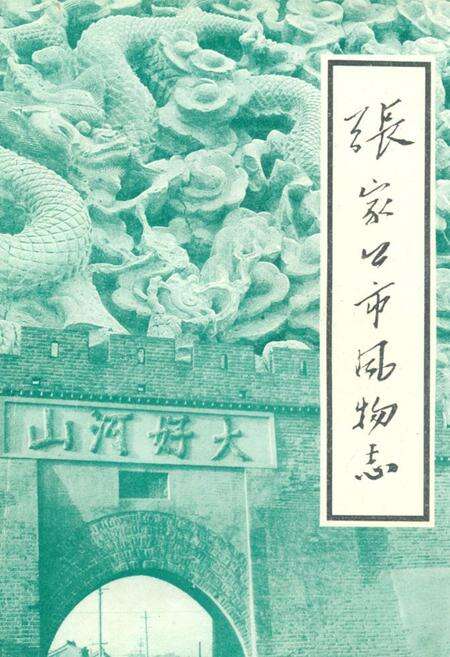 張家口市风物志
大好河山